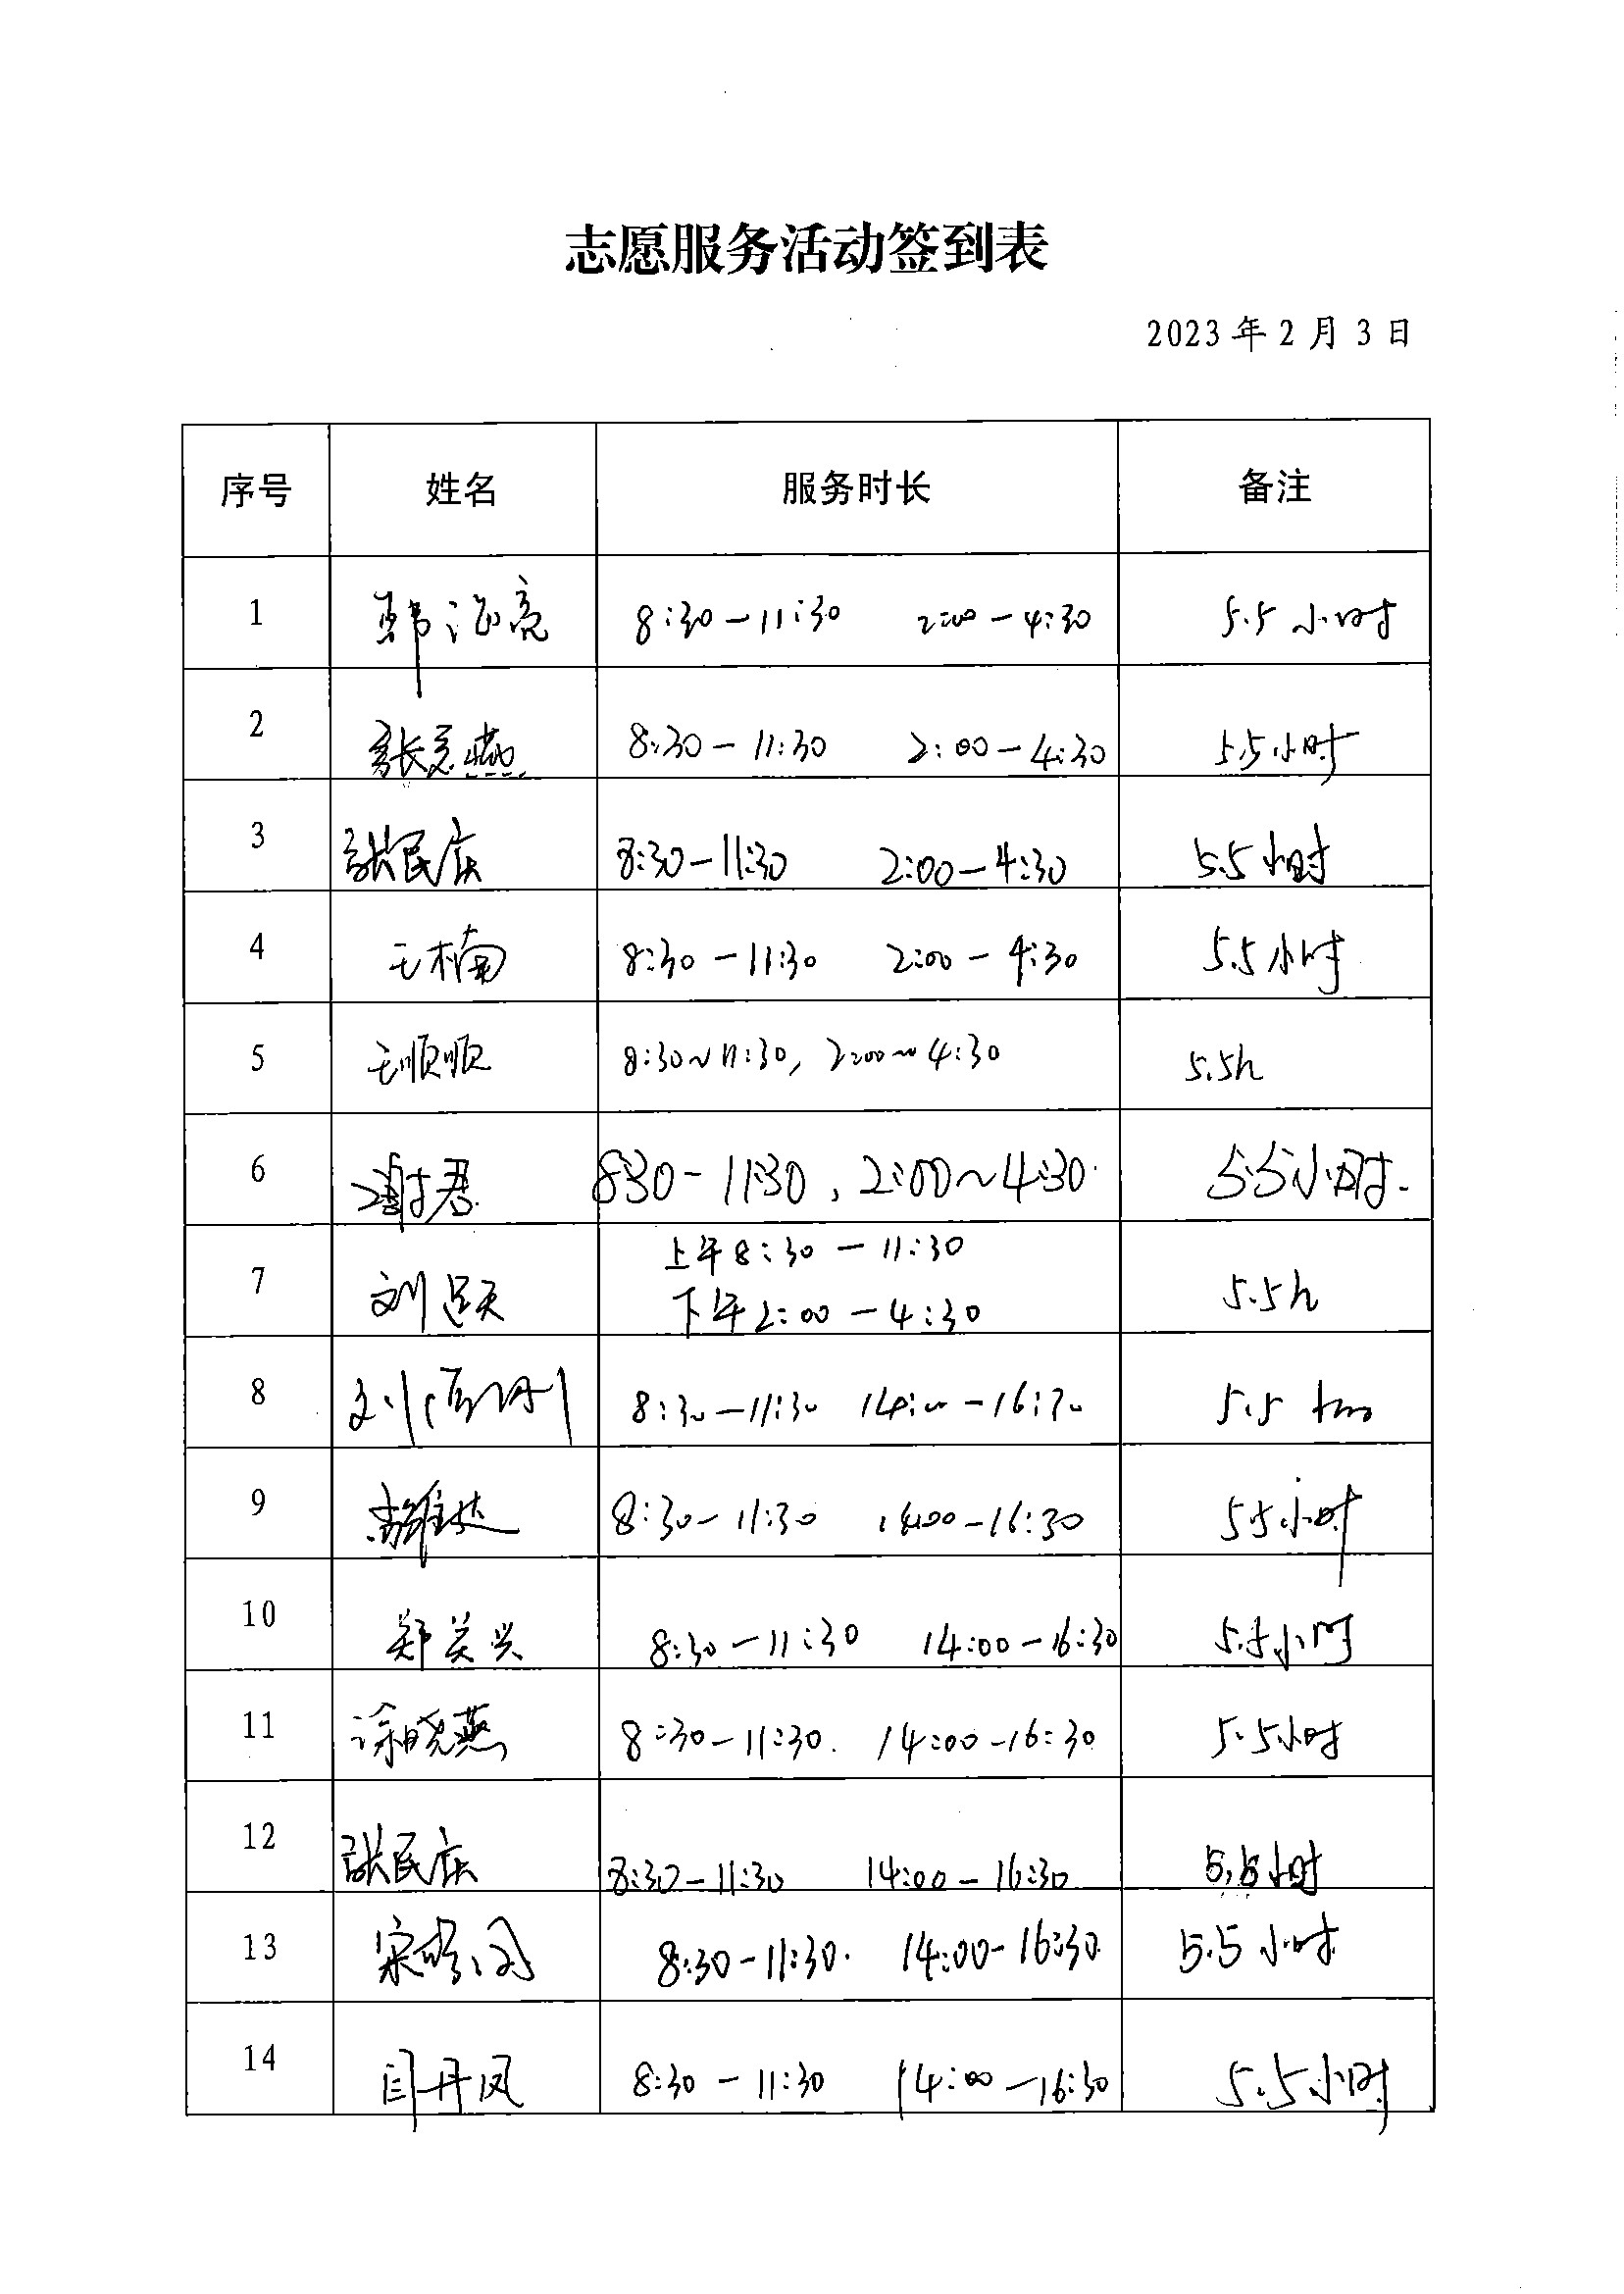 志愿服务活动签到表
2023年2月3日
序号 姓名 服务时长 备注
1 韩海亮 8:30-11:30 2:00-4:30 5.5小时
2 张燕 8:30-11:30 2:00-4:30 5.5小时
3 张民庆 8:30-11:30 2:00-4:30 5.5小时
4 王楠 8:30-11:30 2:00-4:30 5.5小时
5 王顺顺 8:30~11:30, 2:00~4:30 5.5h
6 谢君 8:30-11:30, 2:00~4:30 5.5小时.
7 刘跃天 上午8:30-11:30
下午2:00-4:30 5.5h
8 刘 8:30-11:30 14:00-16:30 5.5
9 8:30-11:30 14:00-16:30 5.5小时
10 郑关兴 8:30-11:30 14:00-16:30 5.5小时
11 涂晓燕 8:30-11:30. 14:00-16:30 5.5小时
12 张民庆 8:30-11:30 14:00-16:30 5.5小时
13 宋 8:30-11:30. 14:00-16:30 5.5小时
14 闫丹凤 8:30-11:30 14:00-16:30 5.5小时